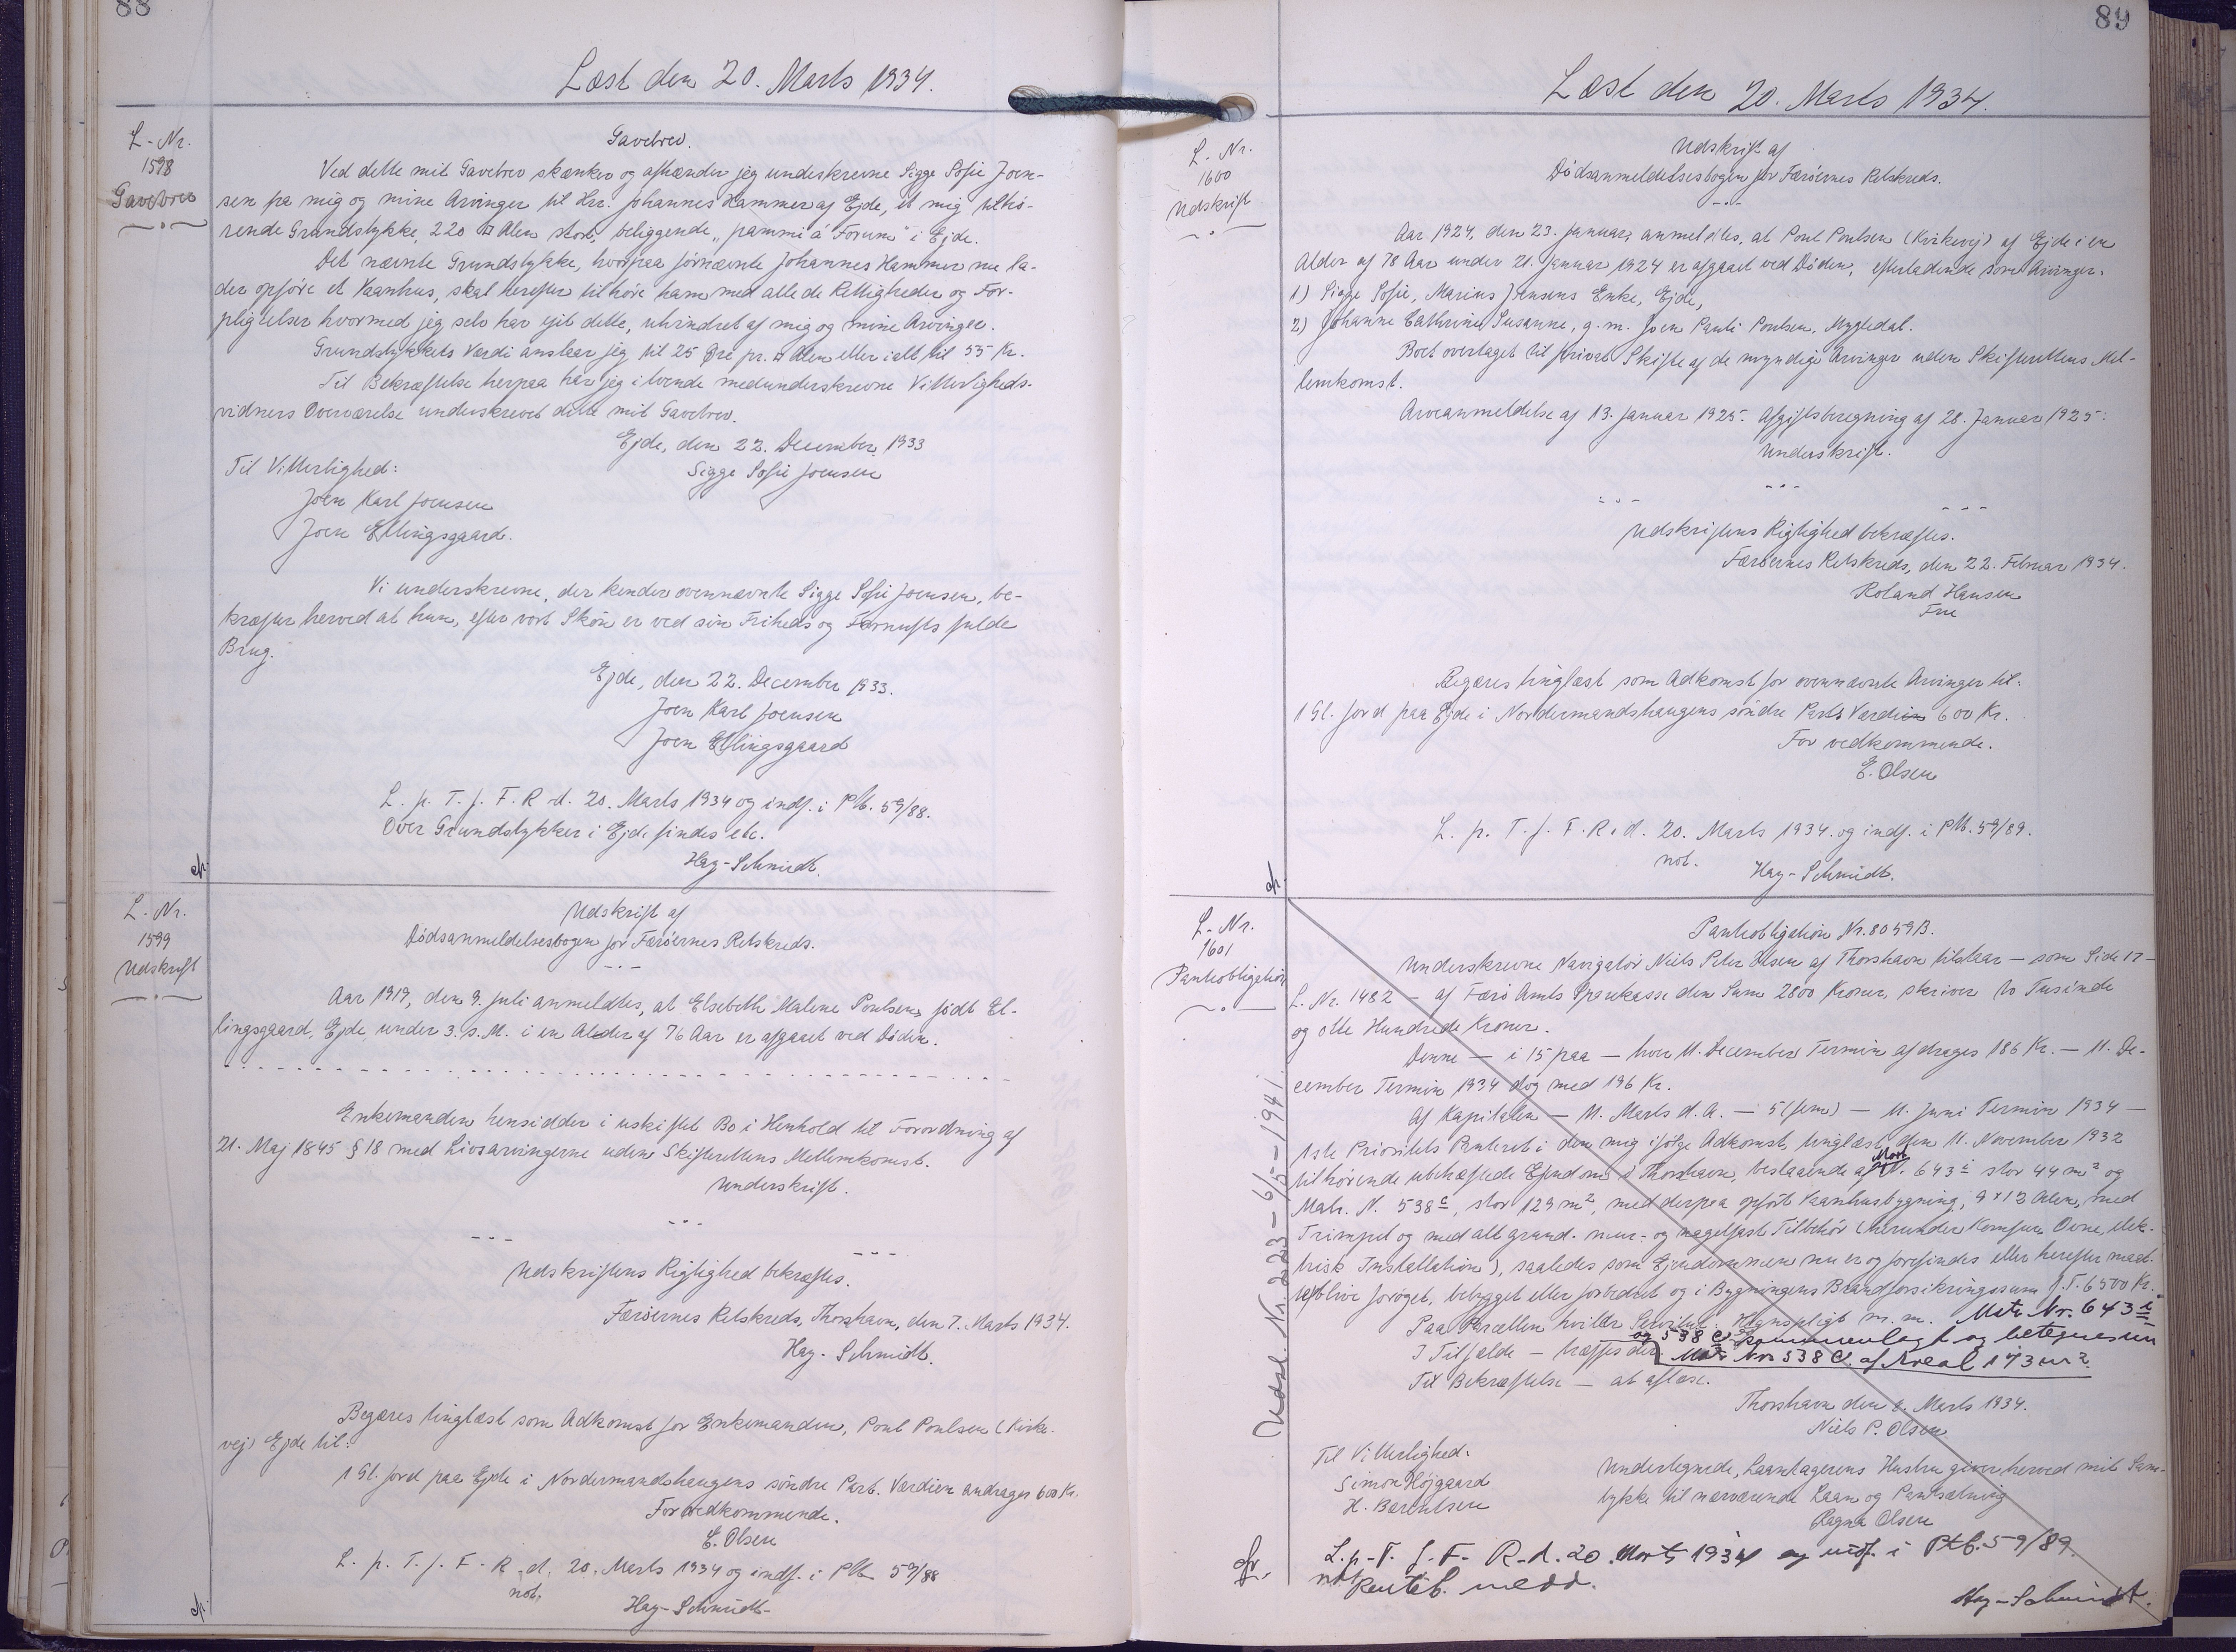 88
Læst den 20. Marts 1934.
L-Nr.
1598
Gavebrev
Gavebrev.
Ved dette mit Gavebrev skænker og afhænder jeg underskrevne Sigge Sofie Joen-
sen fra mig og mine Arvinger til Hr. Johannes Hammer af Ejde, et mig tilhø-
rende Grundstykke, 220 □ Alen stort, beliggende "frammi á Forum" i Ejde.
Det nævnte Grundstykke, hvorpaa førnævnte Johannes Hammer nu la-
der opføre et Vaanhus, skal herefter tilhøre ham med alle de Rettigheder og For-
pligtelser hvormed jeg selv har ejet dette, uhindret af mig og mine Arvinger.
Grundstykkets Værdi anslaar jeg til 25 Øre pr. □ Alen eller ialt til 55 Kr.
Til Bekræftelse herpaa har jeg i tvende medunderskrevne Vitterligheds-
vidners Overværelse underskrevet dette mit Gavebrev.
Ejde, den 22. December 1933
Til Vitterlighed:
Sigge Sofie Joensen
Joen Karl Joensen
Joen Ellingsgaard.
Vi underskrevne, der kender ovennævnte Sigge Sofie Joensen, be-
kræfter herved at hun, efter vort Skøn er ved sin Friheds og Fornufts fulde
Brug.
Ejde, den 22. December 1933.
Joen Karl Joensen
Joen Ellingsgaard
L. p. T. f. F. R. d. 20. Marts 1934 og indf. i Ptb. 59/88.
Over Grundstykker i Ejde findes etc.
Hay-Schmidt.
L-Nr.
1599
Udskrift
Udskrift af
Dødsanmeldelsesbogen for Færøernes Retskreds.
Aar 1919, den 9. Juli anmeldtes, at Elsebeth Malene Poulsen, født El-
lingsgaard, Ejde under 3. s. M. i en Alder af 76 Aar er afgaaet ved Døden.
Enkemanden hensidder i uskiftet Bo i Henhold til Forordning af
21. Maj 1845 § 18 med Livsarvingerne uden Skifterettens Mellemkomst.
Underskrift.
Udskriftens Rigtighed bekræftes.
Færøernes Retskreds, Thorshavn, den 7. Marts 1934.
Hay-Schmidt.
Begæres tinglæst som Adkomst for Enkemanden, Poul Poulsen (Kirke-
vej) Ejde til:
1 Gl. Jord paa Ejde i Nordermandshaugens søndre Part. Værdien andrager 600 Kr.
For vedkommende.
E. Olsen
L. p. T. f. F. R. d. 20. Marts 1934 og indf. i Ptb 59/88
not.
Hay-Schmidt-
89
Læst den 20. Marts 1934.
L-Nr.
1600
Udskrift
Udskrift af
Dødsanmeldelsesbogen for Færøernes Retskreds.
Aar 1924, den 23. Januar, anmeldtes, at Poul Poulsen (Kirkevej) af Ejde i en
Alder af 78 Aar under 21. Januar 1924 er afgaaet ved Døden, efterladende som Arvinger:
1) Sigge Sofie, Marius Joensens Enke, Ejde,
2) Johanne Cathrine Susanne, g. m. Joen Pauli Poulsen, Mygledal.
Boet overtaget til privat Skifte af de myndige Arvinger uden Skifterettens Mel-
lemkomst.
Arveanmeldelse af 13. Januar 1925. Afgiftsberegning af 28. Januar 1925.
Underskrift.
Udskriftens Rigtighed bekræftes.
Færøernes Retskreds, den 22. Februar 1934.
Roland Hansen
Fm
Begæres tinglæst som Adkomst for ovennævnte Arvinger til:
1 Gl. Jord paa Ejde i Nordermandshaugens søndre Part. Værdien 600 Kr.
For vedkommende.
E. Olsen
L. p. T. f. F. R. d. 20. Marts 1934. og indf. i Ptb. 59/89.
not.
Hay-Schmidt.
L-Nr.
1601
Panteobligation
Udsl. Nr. 223-6/5-1941
Panteobligation Nr. 8059B.
Underskrevne Navigatør Niels Peter Olsen af Thorshavn tilstaar — som Side 17 —
L. Nr. 1482 — af Færø Amts Sparekasse den Sum 2800 Kroner, skriver to Tusinde
og otte Hundrede Kroner.
Denne — i 15 paa — hver 11. December Termin afdrages 186 Kr. — 11. De-
cember Termin 1934 dog med 196 Kr.
Af Kapitalen — 11. Marts d. A. — 5 (fem) — 11. Juni Termin 1934 —
1ste Prioritets Panteret i den mig ifølge Adkomst, tinglæst den 11. November 1932
tilhørende ubehæftede Ejendom i Thorshavn, bestaaende af Matr. N. 643 i stor 44 m² og
Matr. N. 538 c, stor 129 m², med derpaa opført Vaanhusbygning, 9 x 12 Alen, med
Trimpel og med alt grund- mur- og nagelfast Tilbehør (herunder Komfur, Ovne, elek-
trisk Installation), saaledes som Ejendommen nu er og forefindes eller herefter maat-
te blive forøget, bebygget eller forbedret og i Bygningens Brandforsikringssum f. T. 6500 Kr.
Paa Parcellen hviler Servitut: Hegnspligt m. m. Matr. Nr. 643 i
og 538 c sammenlagt og betegnes nu
I Tilfælde — træffes der. Matr Nr. 538 c af Areal 173 m².
Til Bekræftelse — at aflæse.
Thorshavn den 8. Marts 1934.
Niels P. Olsen
Til Vitterlighed:
Simon Højgaard
H. Bærentsen
Undertegnede, Laantagerens Hustru giver herved mit Sam-
tykke til nærværende Laan og Pantsætning
Ragna Olsen
L. p. T. f. F. R. d. 20. Marts 1934 og indf. i Ptb. 59/89.
not Panteb. medd.
Hay-Schmidt.